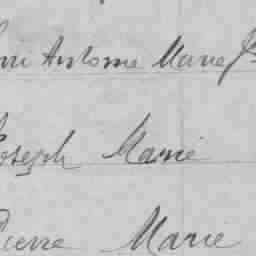 Antome Marie
Joseph Marie
Pierre Marie